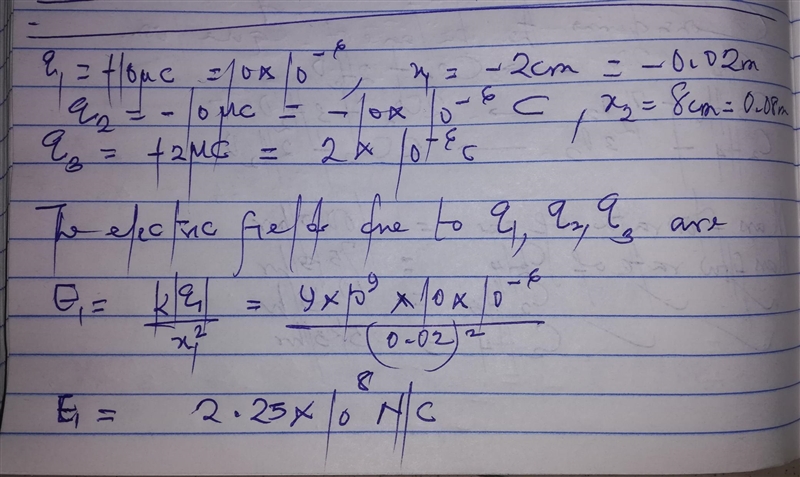 q₁ = +10μC = 10x10⁻⁶, x₁ = -2cm = -0.02m
q₂ = -10μC = -10x10⁻⁶ C, x₂ = 8cm = 0.08m
q₃ = +2μC = 2x10⁻⁶C
The electric field due to q₁, q₂, q₃ are
E₁ = k|q₁| / x₁² = 9x10⁹ x 10x10⁻⁶ / (0.02)²
E₁ = 2.25x10⁸ N/C